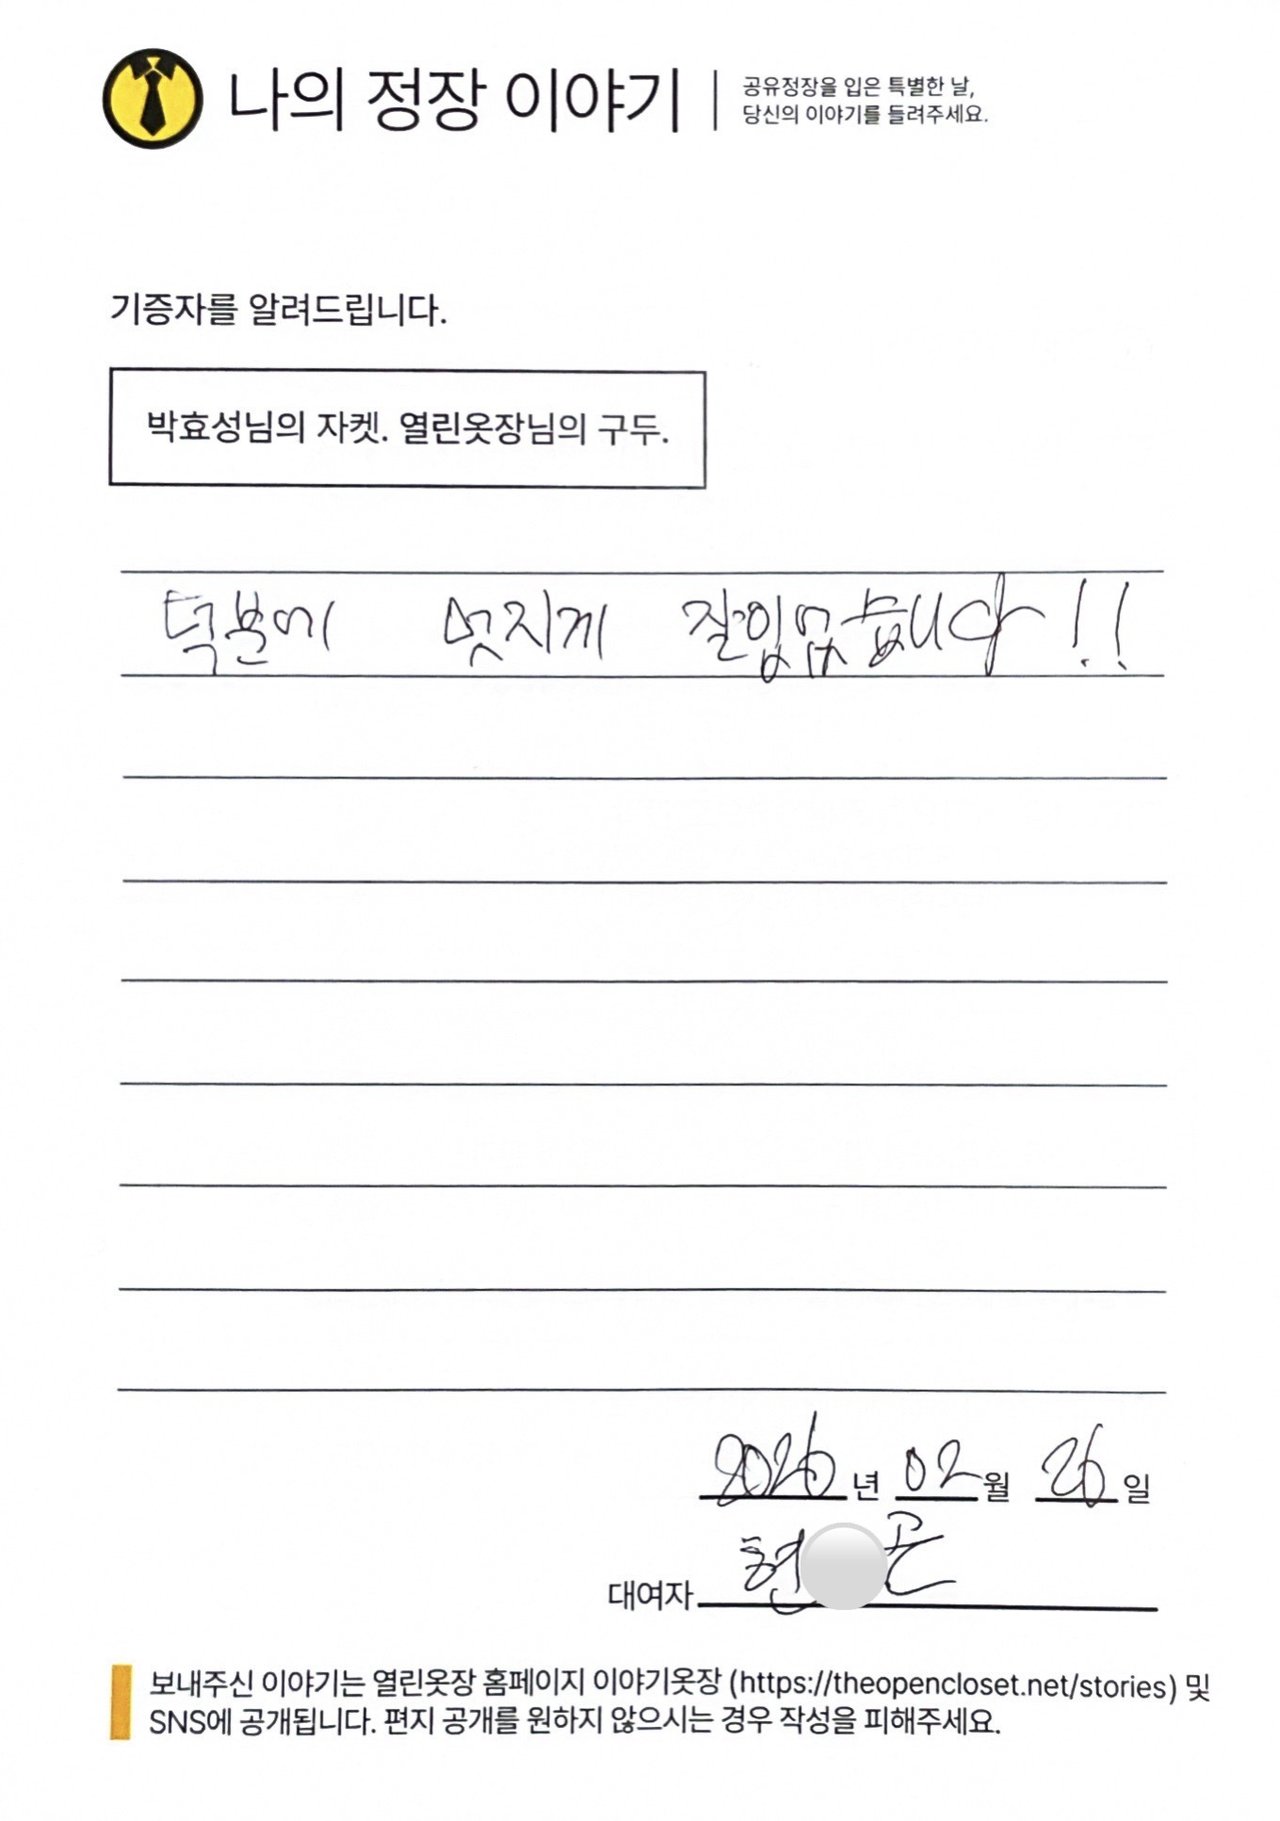 나의 정장 이야기
공유정장을 입은 특별한 날,
당신의 이야기를 들려주세요.
기증자를 알려드립니다.
박효성님의 자켓. 열린옷장님의 구두.
덕분에 멋지게 잘입었습니다!!
2026년 02월 26일
대여자 현
보내주신 이야기는 열린옷장 홈페이지 이야기옷장 (https://theopencloset.net/stories) 및
SNS에 공개됩니다. 편지 공개를 원하지 않으시는 경우 작성을 피해주세요.